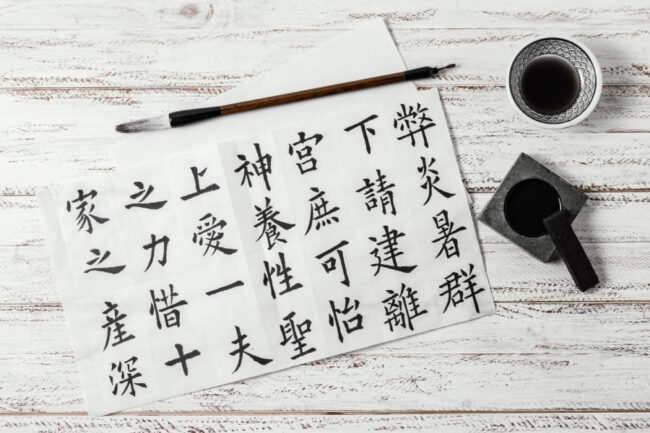 弊炎暑群
下請建離
宮庶可怡
神養性聖
上愛一夫
之力惜十
家之産深